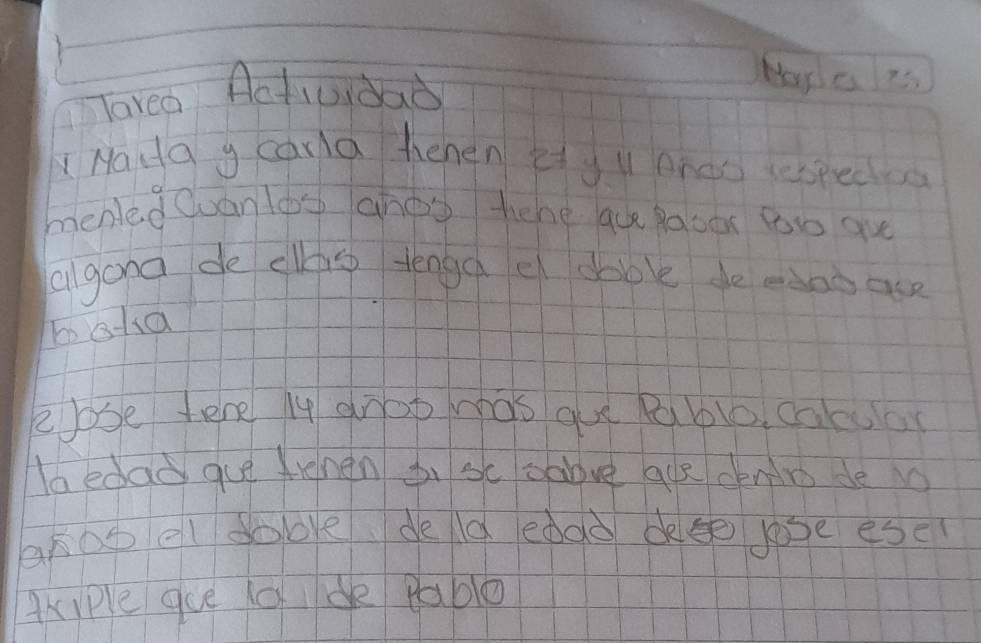 Tarea Actividad
1 Malla y carla tienen 21 y 11 Anos respectiva
mente¿ Cuantos anos tiene que Pasar Para que
alguna de ellas tenga el doble de edad que
la otra
2 Jose tene 14 anos más que Pablo. Calcular
la edad que tienen si se sabve que dentro de 10
años el doble de la edad de jose es el
triple que la de Pablo